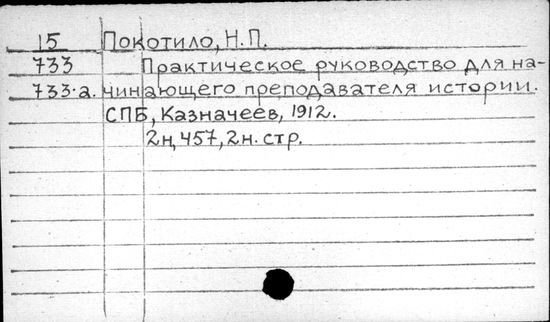 15 Покотило, Н.П.
733 Практическое руководство для на-
733·а. чинающего преподавателя истории.
СПБ, Казначеев, 1912.
2н, 457, 2н. стр.